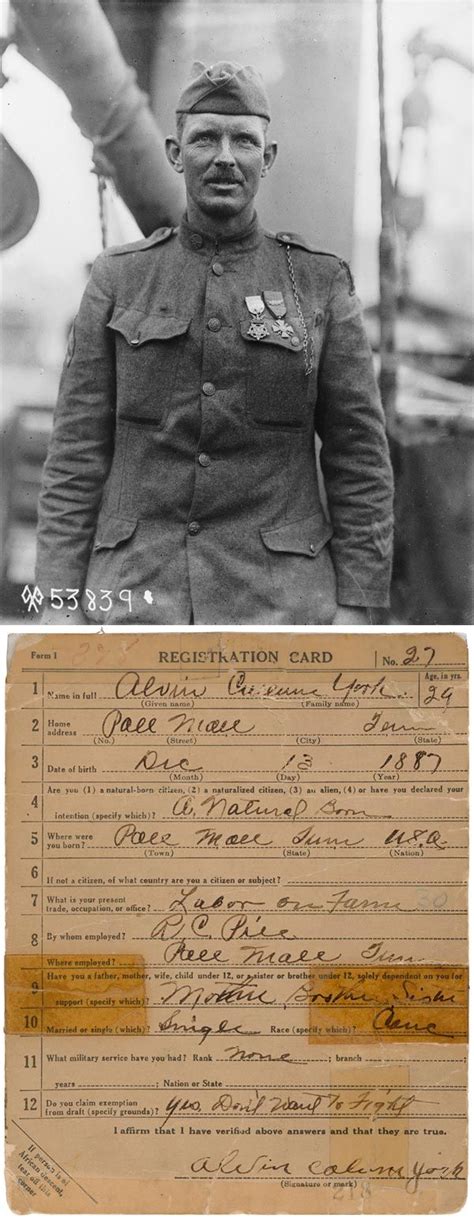 53839
Form 1 REGISTRATION CARD No. 27
1 Name in full Alvin Cullum York Age, in yrs. 29
(Given name) (Family name)
2 Home address Pall Mall Tenn
(No.) (Street) (City) (State)
3 Date of birth Dec 13 1887
(Month) (Day) (Year)
Are you (1) a natural-born citizen, (2) a naturalized citizen, (3) an alien, (4) or have you declared your
4 intention (specify which)? A. Natural Born
5 Where were you born? Pall Mall Tenn U.S.A.
(Town) (State) (Nation)
6 If not a citizen, of what country are you a citizen or subject?
7 What is your present trade, occupation, or office? Labor on Farm 30
8 By whom employed? R. C. Pile
Where employed? Pall Mall Tenn
Have you a father, mother, wife, child under 12, or a sister or brother under 12, solely dependent on you for
9 support (specify which)? Mother, Brother, Sister
10 Married or single (which)? Single Race (specify which)?
11 What military service have you had? Rank none ; branch ;
years ; Nation or State
12 Do you claim exemption from draft (specify grounds)? yes. Dont Want To Fight
I affirm that I have verified above answers and that they are true.
Alvin Cullum York
(Signature or mark)
If person is of
African descent,
tear off this
corner